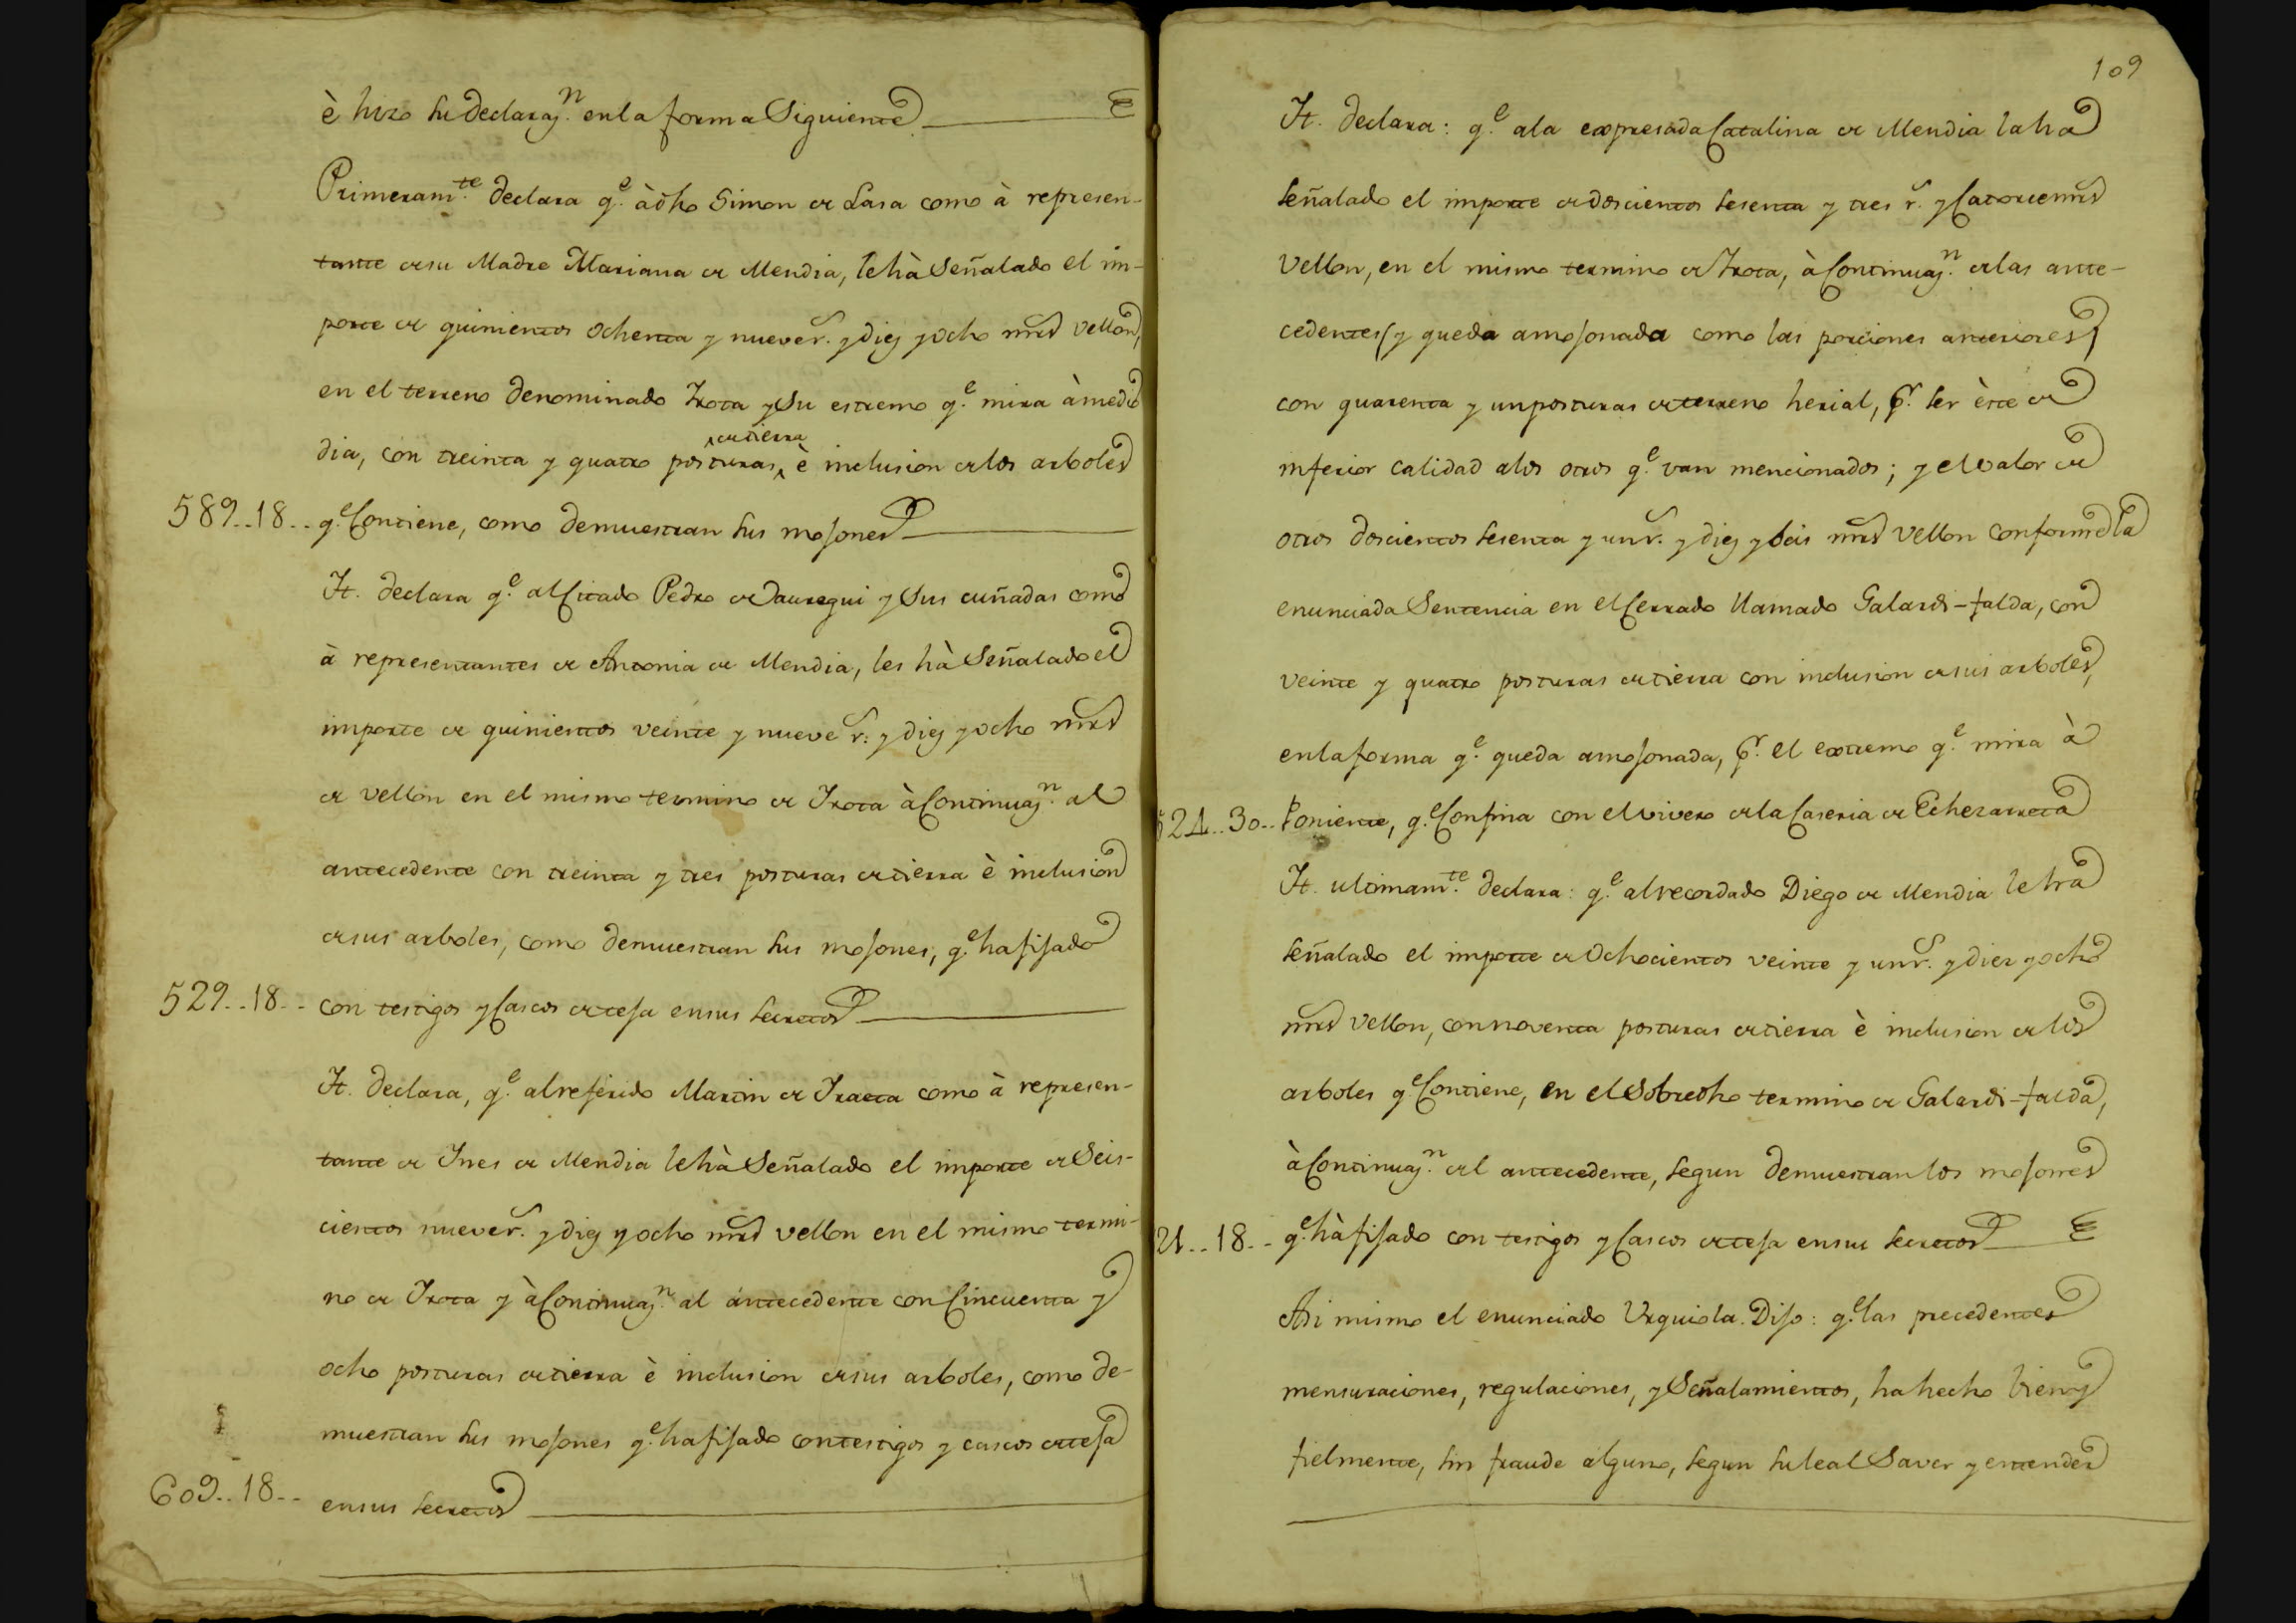 è hizo su declaraz.n en la forma Siguiente
Primeram.te declara q.e à dho Simon de Lasa como à represen-
tante de su Madre Mariana de Mendia, le hà Señalado el im-
porte de quinientos ochenta y nueve r.s y diez y ocho mrs vellon,
en el terreno denominado Irota y su estremo q.e mira à medio
de tierra
dia, con treinta y quatro posturas, è inclusion de los arboles
589..18.. q.e Contiene, como demuestran sus mojones
It. declara q.e al Citado Pedro de Jauregui y sus cuñadas como
à representantes de Antonia de Mendia, les hà Señalado el
importe de quinientos veinte y nueve r.s y diez y ocho mrs
de vellon en el mismo termino de Irota à Continuaz.n al
antecedente con treinta y tres posturas de tierra è inclusion
de sus arboles, como demuestran sus mojones, q.e ha fijado
529..18.. con testigos y Cascos de teja en sus secretos
It. declara, q.e al referido Martin de Iraeta como à represen-
tante de Ines de Mendia le hà Señalado el importe de Seis-
cientos nueve r.s y diez y ocho mrs vellon en el mismo termi-
no de Irota y à Continuaz.n al antecedente con Cincuenta y
ocho posturas de tierra è inclusion de sus arboles, como de-
muestran sus mojones q.e ha fijado con testigos y cascos de teja
609..18.. en sus secretos
109
It. declara: q.e a la expresada Catalina de Mendia la ha
señalado el importe de doscientos sesenta y tres r.s y Catorce mrs
vellon, en el mismo termino de Irota, à Continuaz.n de las ante-
cedentes (y queda amojonada como las porciones anteriores)
con quarenta y un posturas de terreno herial, p.r ser èste de
inferior calidad a los otros q.e van mencionados; y el valor de
otros doscientos sesenta y un r.s y diez y seis mrs vellon conforme la
enunciada Sentencia en el Cerrado llamado Galardi-falda, con
veinte y quatro posturas de tierra con inclusion de sus arboles,
en la forma q.e queda amojonada, p.r el extremo q.e mira à
524..30.. Poniente, q.e Confina con el vivero de la Caseria de Echezarreta
It. ultimam.te declara: q.e al recordado Diego de Mendia le ha
señalado el importe de Ochocientos veinte y un r.s y diez y ocho
mrs vellon, con noventa posturas de tierra è inclusion de los
arboles q.e Contiene, en el Sobredho termino de Galardi-falda,
à Continuaz.n del antecedente, segun demuestran los mojones
21..18.. q.e hà fijado con testigos y Cascos de teja en sus secretos
Asi mismo el enunciado Urquiola. Dijo: q.e las precedentes
mensuraciones, regulaciones, y Señalamientos, ha hecho bien y
fielmente, sin fraude alguno, segun su leal Saver y entender